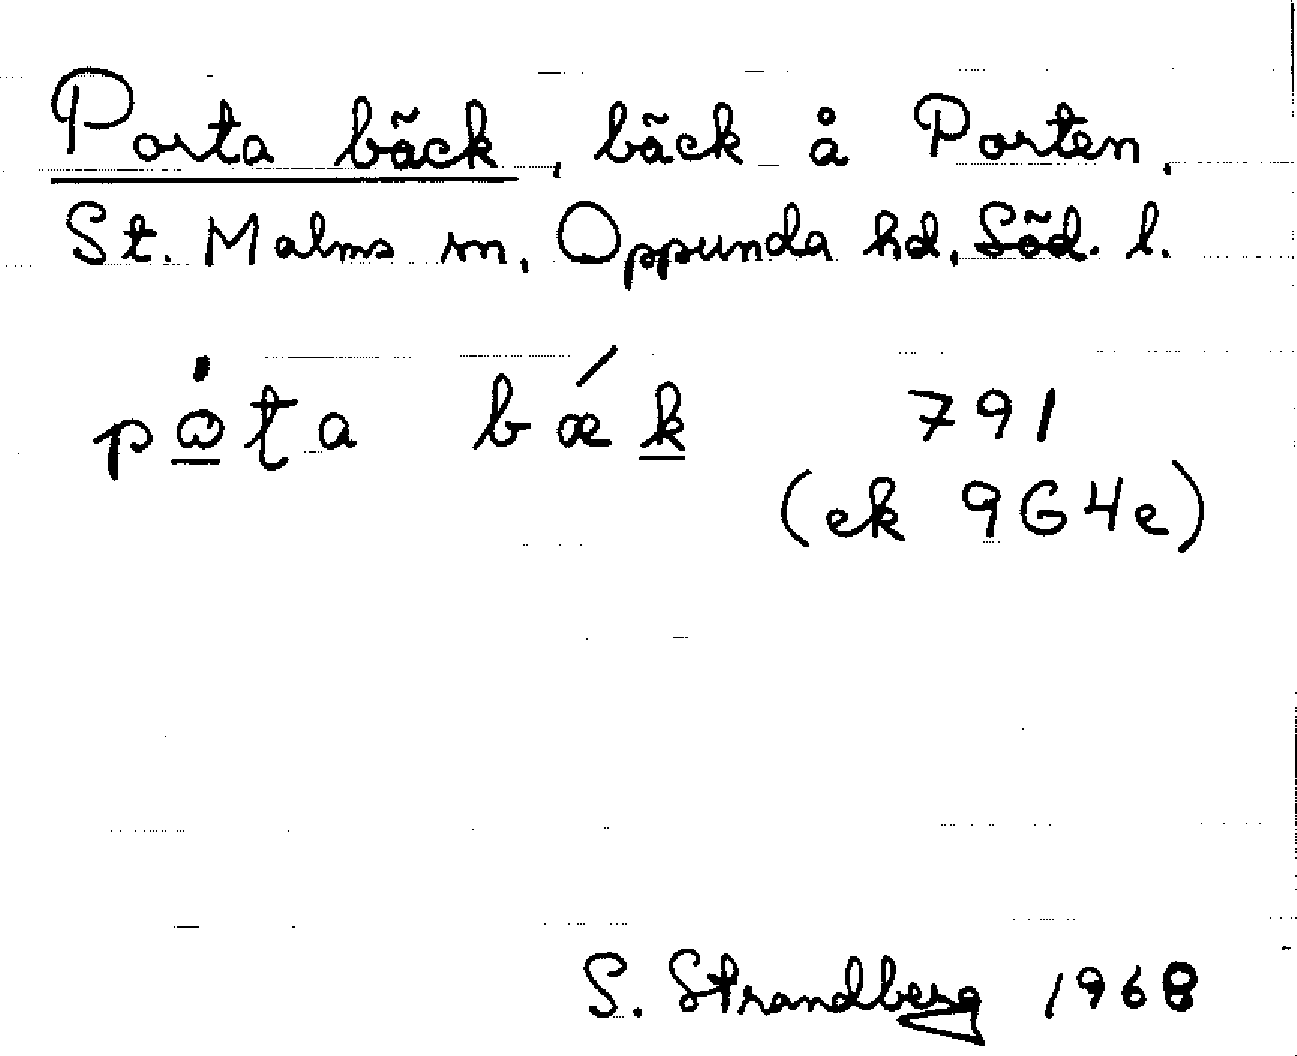 Porta bäck, bäck å Porten,
St. Malms sn, Oppunda hd, Söd. l.
pὼta bǽk 791
(ek 9G4e)
S. Strandberg 1968